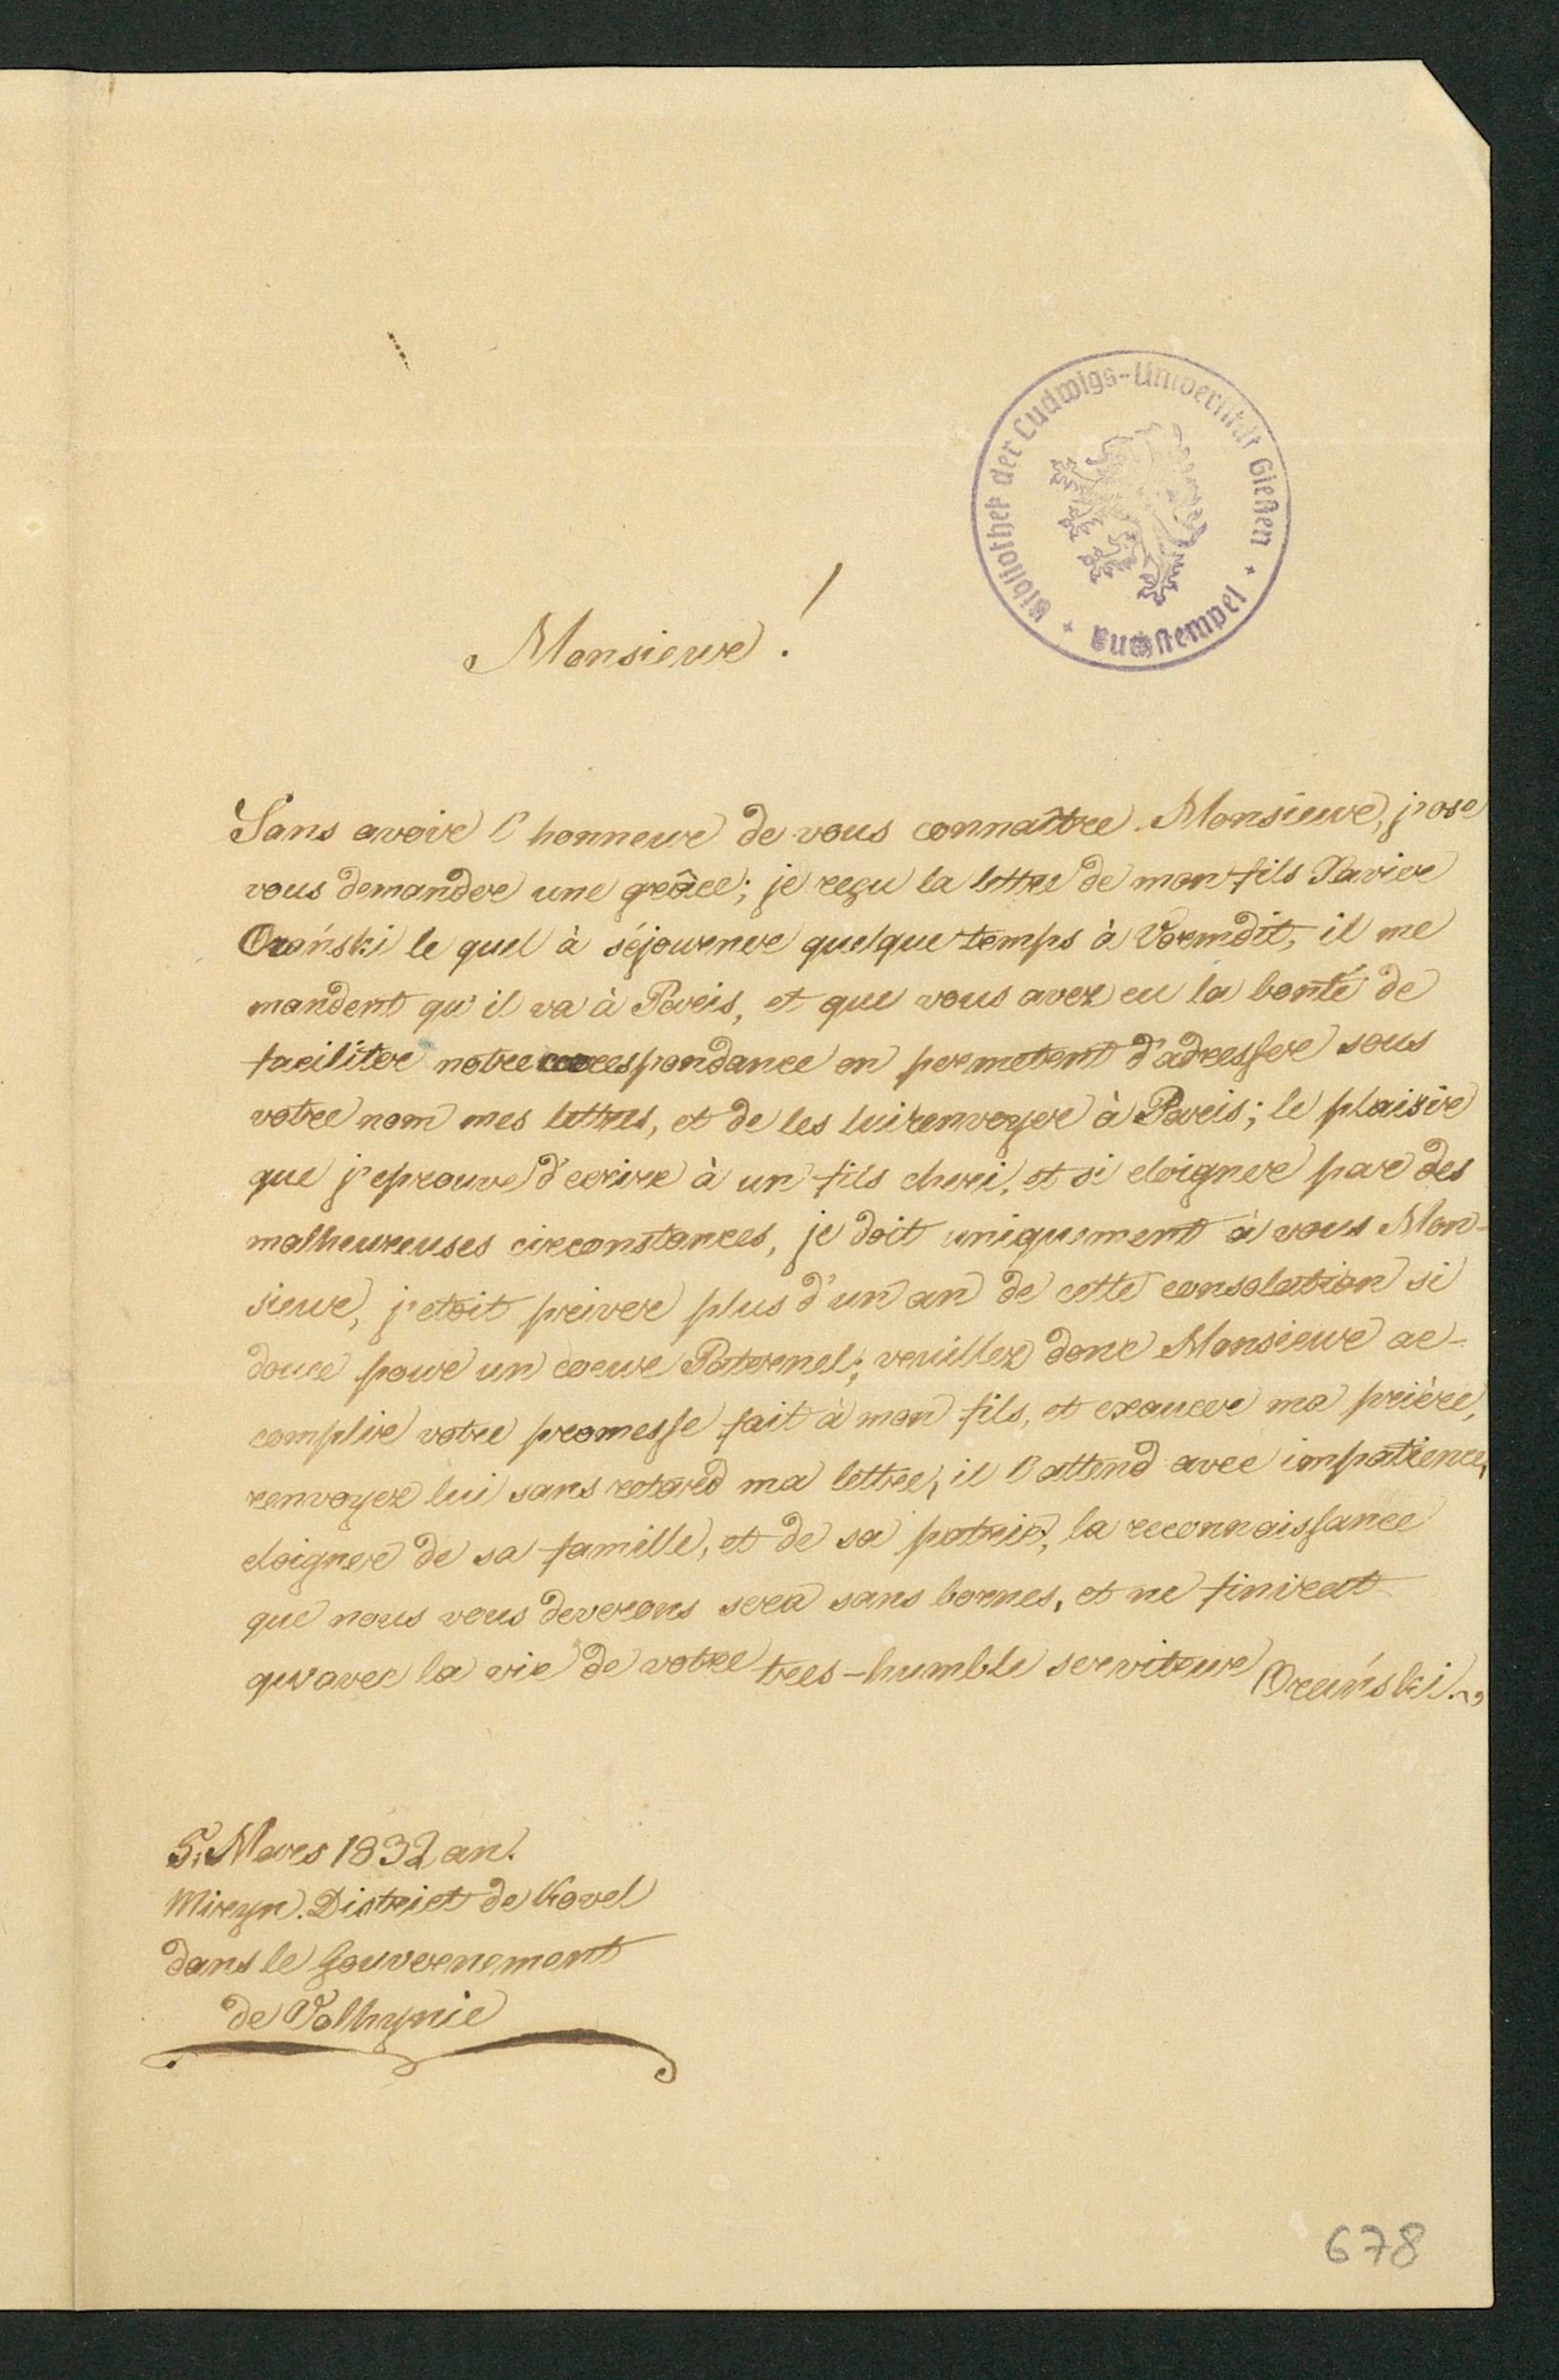 Bibliothek der Ludwigs-Universität Gießen
Buchstempel
Monsieur!
Sans avoir l'honneur de vous connaître Monsieur, j'ose
vous demander une grâce; je reçu la lettre de mon fils Xavier
le quel à séjourner quelque temps à Vormdit, il me
mandent qu'il va à Paris, et que vous avez eu la bonté de
faciliter notre correspondance en permetent d'adresser sous
votre nom mes lettres, et de les lui renvoyer à Paris; le plaisir
que j'eprouve d'ecrire à un fils cheri, et si eloigner par des
malheureuses circonstances, je doit uniquement à vous Mon-
sieur, j'etoit priver plus d'un an de cette consolation si
douce pour un coeur Paternel; veuillez donc Monsieur ac-
complir votre promesse fait à mon fils, et exaucer ma prière,
renvoyez lui sans retard ma lettre, il l'attend avec impatience,
eloigner de sa famille, et de sa patrie; la reconnaissance
que nous vous deverons sera sans bornes, et ne finirat
qu'avec la vie de votre tres-humble serviteur Orański.
5. Mars 1832 an.
Miryn. District de Kovel
dans le Gouvernement
de Volhynie
678